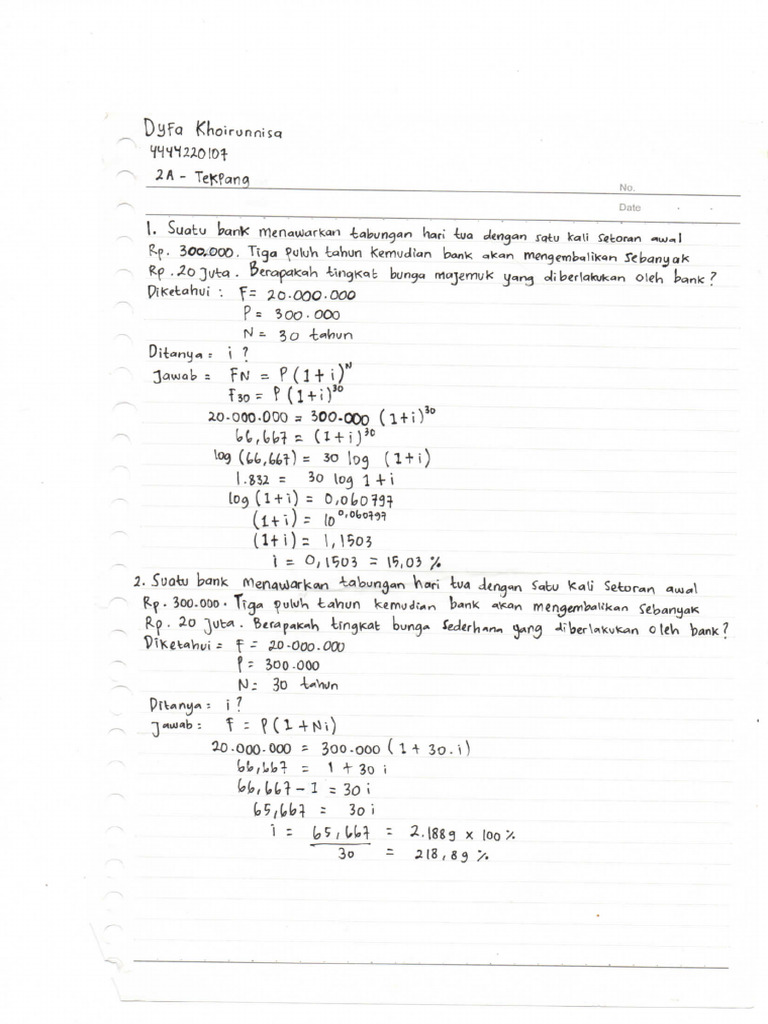 Dyfa Khoirunnisa
4444220107
2A - Tekpang
No.
Date
1. Suatu bank menawarkan tabungan hari tua dengan satu kali setoran awal
Rp. 300.000. Tiga puluh tahun kemudian bank akan mengembalikan sebanyak
Rp. 20 Juta. Berapakah tingkat bunga majemuk yang diberlakukan oleh bank?
Diketahui : F = 20.000.000
P = 300.000
N = 30 tahun
Ditanya = i ?
Jawab = FN = P(1+i)^N
F30 = P(1+i)^30
20.000.000 = 300.000 (1+i)^30
66,667 = (1+i)^30
log (66,667) = 30 log (1+i)
1.832 = 30 log 1+i
log (1+i) = 0,060797
(1+i) = 10^0,060797
(1+i) = 1,1503
i = 0,1503 = 15,03 %
2. Suatu bank menawarkan tabungan hari tua dengan satu kali setoran awal
Rp. 300.000. Tiga puluh tahun kemudian bank akan mengembalikan sebanyak
Rp. 20 Juta. Berapakah tingkat bunga sederhana yang diberlakukan oleh bank?
Diketahui = F = 20.000.000
P = 300.000
N = 30 tahun
Ditanya : i ?
Jawab : F = P(1+Ni)
20.000.000 = 300.000 (1 + 30.i)
66,667 = 1 + 30 i
66,667 - 1 = 30 i
65,667 = 30 i
i = 65,667 = 2.1889 x 100 %
30 = 218,89 %